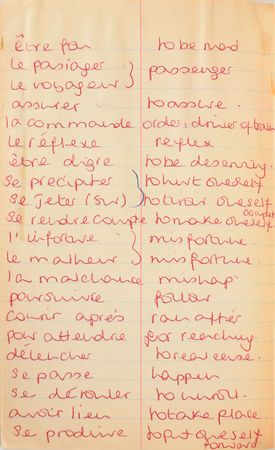 être fou to be mad
le passager passenger
le voyageur
assurer to assure.
la commande order, driver of train
le réflexe reflex
être digre to be deserving.
se precipiter to hurt oneself
se jeter (sur) to throw oneself
se rendre compte to make oneself
l'infortune misfortune.
le malheur misfortune.
la malchance mishap
poursuivre follow
courir après ran after
pour attendre for reaching.
délencher to realease.
se passe happen
se dérouler to unroll.
avoir lieu to take place.
se produire to put oneself
forward